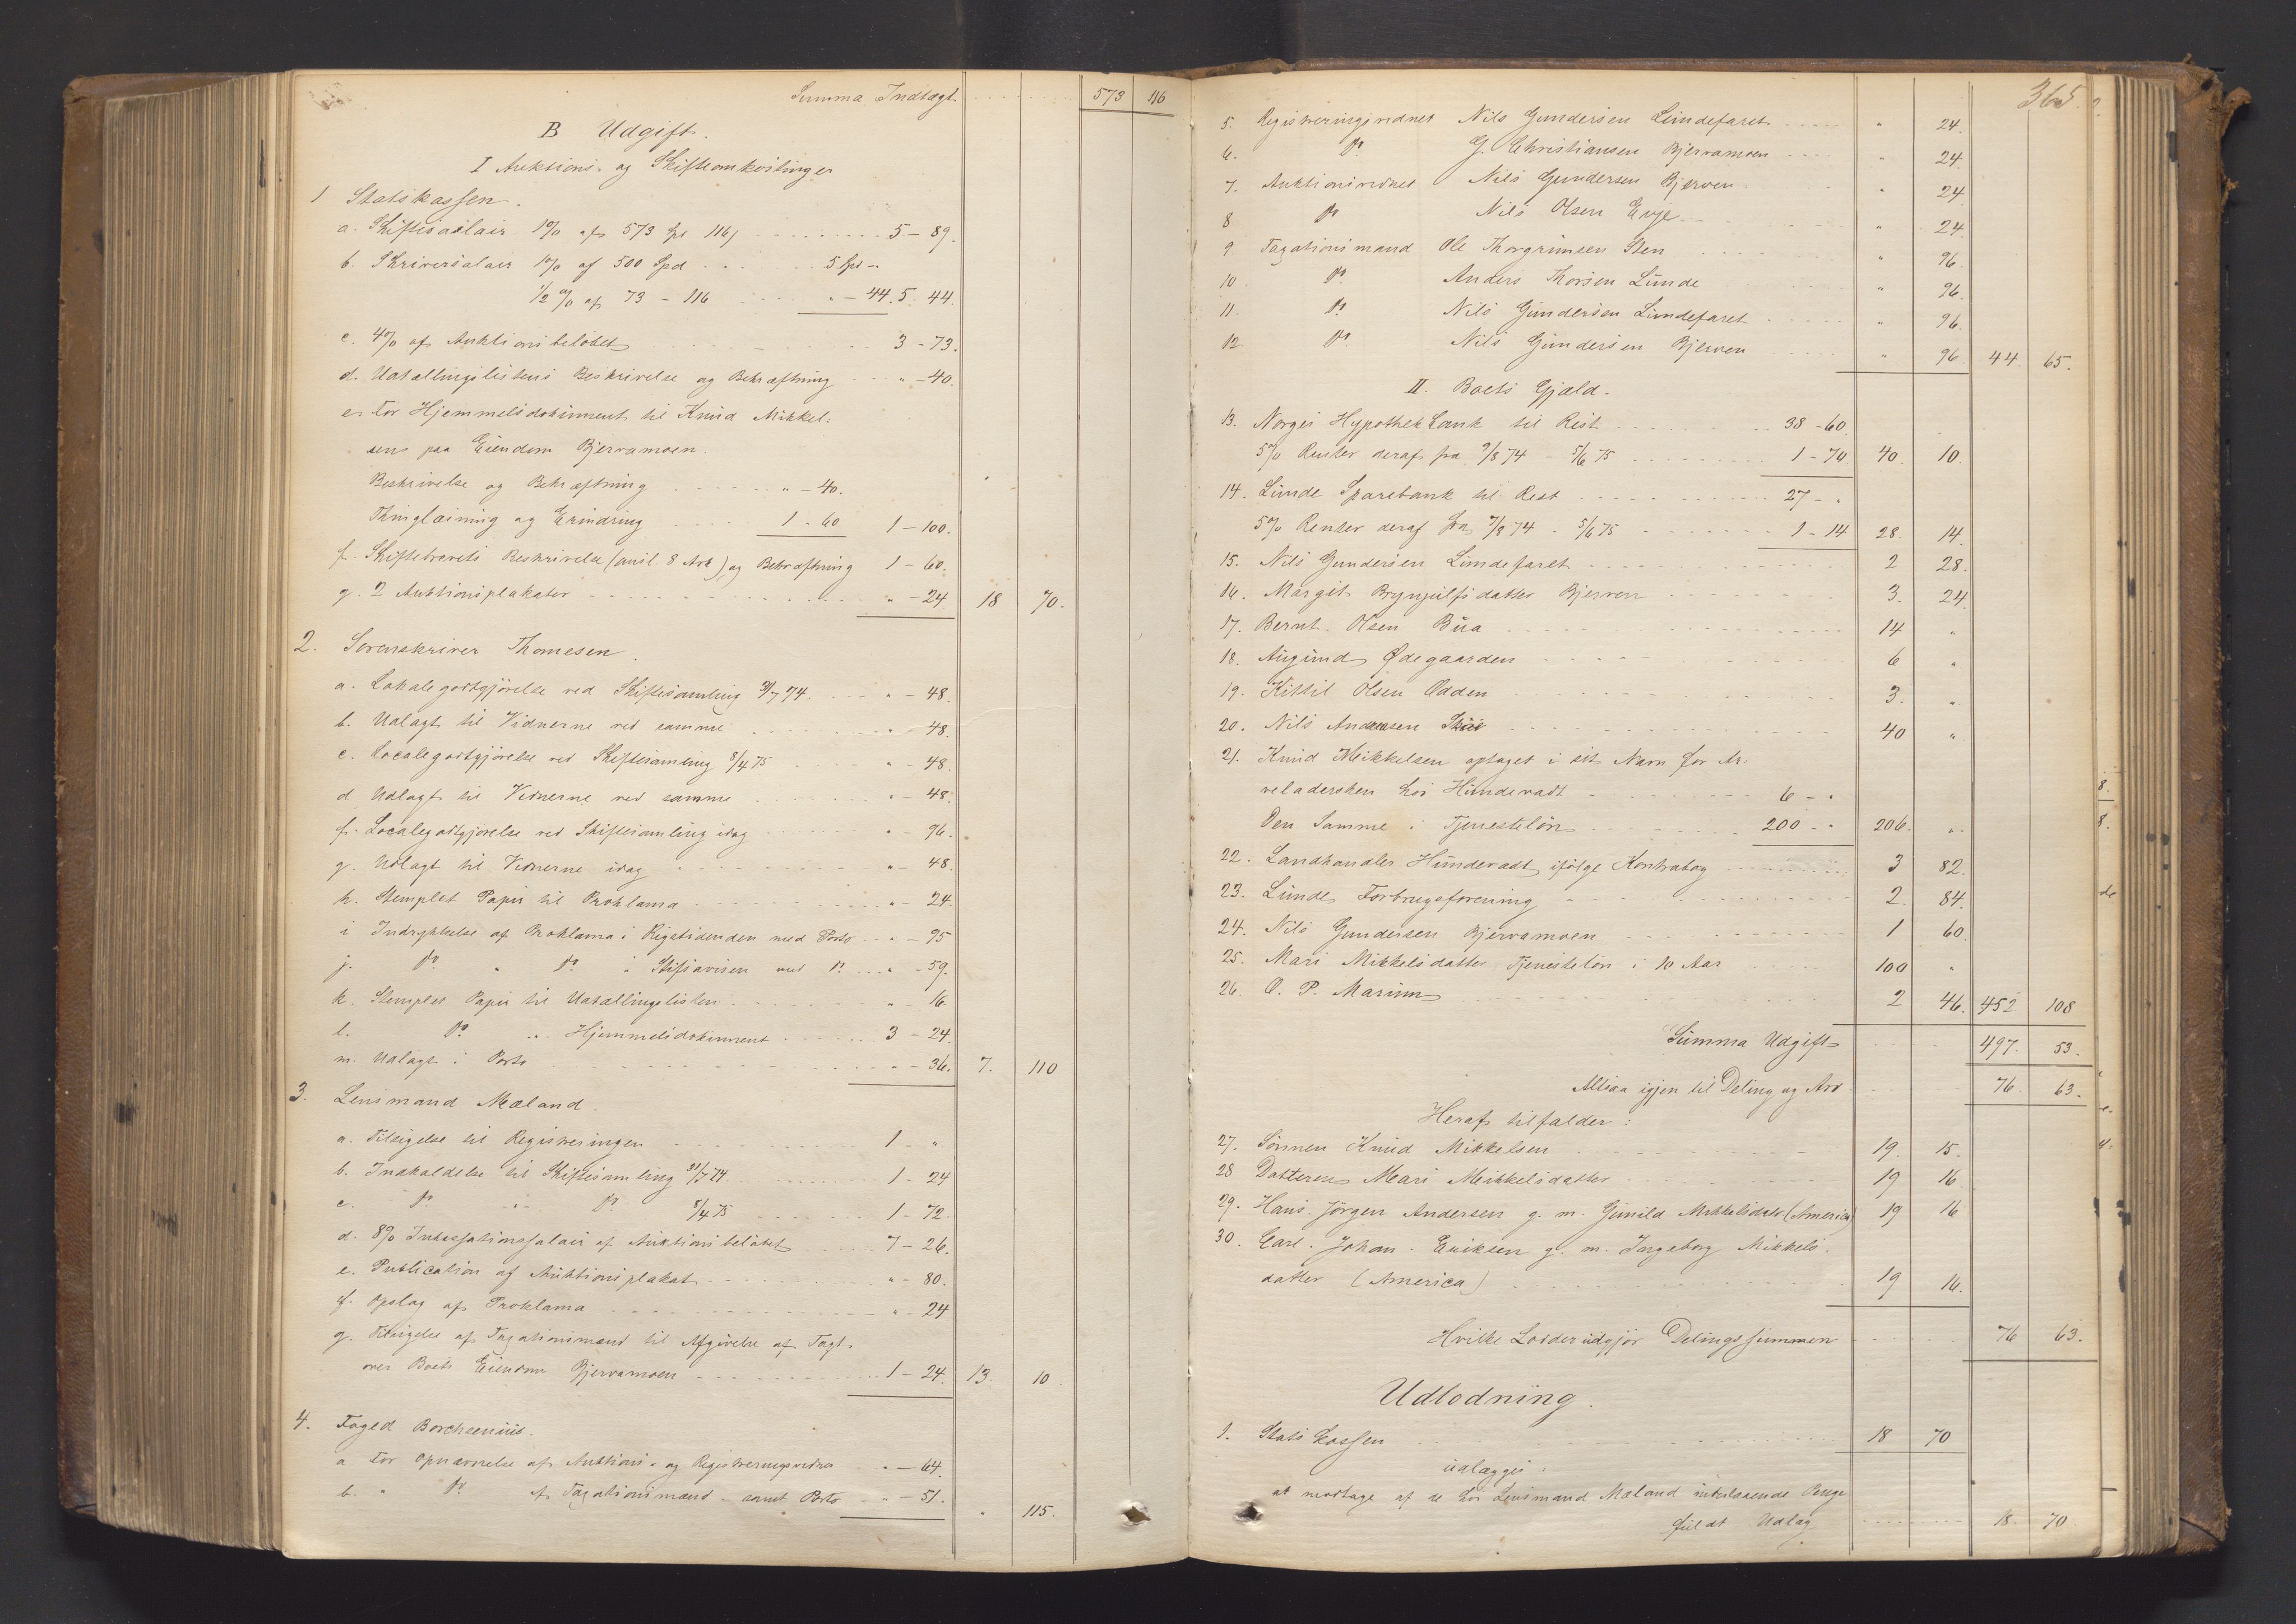 Summa Indtægt . . . 573 116
B Udgift.
I Auktions- og Skifteomkostninger
1 Statskassen.
a. Skiftesalair 1% af 573 Spd 116 β . . . 5 - 89.
b. Skriversalair 1% af 500 Spd . . . 5 Spd -"
1/2 % af 73 - 116 . . . " - 44. 5. 44.
c. 4% af Auktionsbeløbet . . . 3 - 73.
d. Udtællingslistens Beskrivelse og Bekræftning . . . " - 40.
e. For Hjemmelsdokument til Knud Mikkel-
sen paa Eiendom Bjervamoen
Beskrivelse og Bekræftning . . . " - 40.
Thinglæsning og Erindring . . . 1 - 60 1 - 100.
f. Skiftebrevets Beskrivelse (ansl. 8 Ark) og Bekræftning 1 - 60.
g. 2 Auktionsplakater . . . " - 24 18 70.
2. Sorenskriver Thomesen.
a. Lokalegodtgjørelse ved Skiftesamling 31/7 74 . . . " - 48.
b. Udlagt til Vidnerne ved samme . . . " - 48.
c. Localegodtgjørelse ved Skiftesamling 8/4 75 . . . " - 48.
d Udlagt til Vidnerne ved samme . . . " - 48.
f. Localegodtgjørelse ved Skiftesamling idag . . . " - 96.
g. Udlagt til Vidnerne idag . . . " - 48.
h. Stemplet Papir til Proklama . . . " - 24.
i Indrykkelse af Proklama i Rigstidenden med Porto . . . " - 95
j. Do " Do i Stiftsavisen med Do . . . " - 59.
k. Stemplet Papir til Udtællingslisten . . . " - 16.
l. Do " Hjemmelsdokument . . . 3 - 24.
m. Udlagt i Porto . . . " - 36. 7. 110
3. Lensmand Mæland.
a. Tilsigelse til Registreringen . . . 1 - "
b. Indkaldelse til Skiftesamling 31/7 74 . . . 1 - 24
c. Do " Do 8/4 75 . . . 1 - 72.
d. 8% Inkassationssalair af Auktionsbeløbet . . . 7 - 26.
e. Publication af Auktionsplakat . . . " - 80.
f. Opslag af Proklama . . . " - 24
g. Tilsigelse af Taxationsmænd til Afgivelse af Taxt
over Boets Eiendom Bjervamoen . . . 1 - 24. 13. 10.
4. Foged Borchsenius.
a For Opnævnelse af Auktions- og Registreringsvidner . . . " - 64.
b. " Do af Taxationsmænd samt Porto . . . " - 51. " 115.
365.
5. Registreringsvidnet Nils Gundersen Lundefaret . . . " 24.
6. Do G. Christiansen Bjervamoen . . . " 24.
7. Auktionsvidnet Nils Gundersen Bjerven . . . " 24
8 Do Nils Olsen Evje . . . " 24
9. Taxationsmand Ole Thorgrimsen Sten . . . " 96.
10. Do Anders Thorsen Lunde . . . " 96.
11. Do Nils Gundersen Lundefaret . . . " 96.
12. Do Nils Gundersen Bjerven . . . " 96. 44 65.
II. Boets Gjæld.
13. Norges Hypothekbank til Rest . . . 38 - 60
5% Renter deraf fra 9/8 74 - 5/6 75 . . . 1 - 70 40. 10.
14. Lunde Sparebank til Rest . . . 27 - "
5% Renter deraf fra 7/8 74 - 5/6 75 . . . 1 - 14 28. 14.
15. Nils Gundersen Lundefaret . . . 2 28.
16. Margit Brynjulfsdatter Bjerven . . . 3. 24
17. Bernt Olsen Bua . . . 14 "
18. Augund Ødegaarden . . . 6 "
19. Kittil Olsen Odden . . . 3. "
20. Nils Andersen . . . 40 "
21. Knud Mikkelsen optaget i sit Navn for Ar-
veladersken hos Hundevadt . . . 6 - "
Den Samme i Tjenesteløn . . . 200 - " 206. "
22. Landhandler Hundevadt ifølge Kontrabog . . . 3 82.
23. Lunde Forbrugsforening . . . 2. 84.
24. Nils Gundersen Bjervamoen . . . 1 60.
25. Mari Mikkelsdatter Tjenesteløn i 10 Aar . . . 100 "
26. O. P. Marium . . . 2 46. 452 108
Summa Udgift . . . 497. 53.
Altsaa igjen til Deling og Arv . . . 76. 63.
Heraf tilfalder:
27. Sønnen Knud Mikkelsen . . . 19. 15.
28 Datteren Mari Mikkelsdatter . . . 19 16.
29. Hans Jørgen Andersen g. m. Gunild Mikkelsdatr (America) 19 16
30. Carl Johan Eriksen g. m. Ingeborg Mikkels-
datter (America) . . . 19 16.
Hvilke Lodder udgjør Delingssummen . . . 76 63.
Udlodning.
1. Statskassen . . . 18 70
udlægges:
at modtage af de hos Lensmand Mæland indestaaende Penge
fuldt Udlæg . . . 18. 70